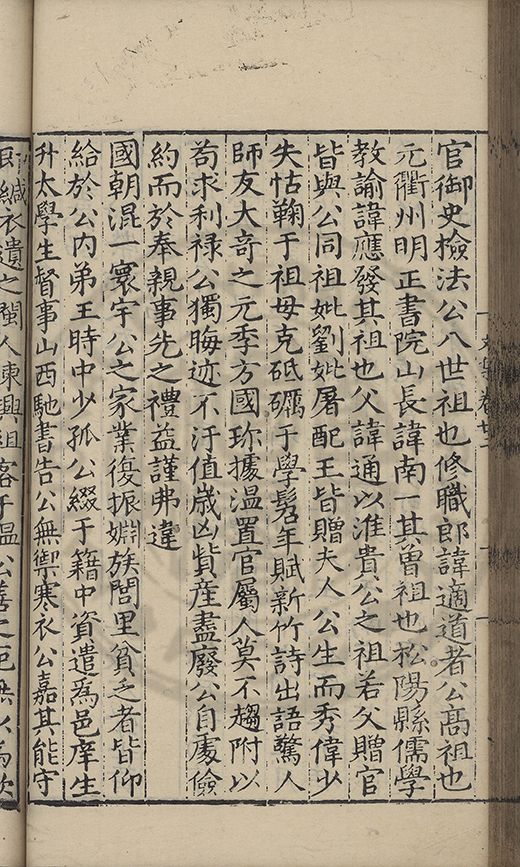 官御史檢法公八世祖也修職郎諱適道者公髙祖也
元衢州明正書院山長諱南一其曽祖也松陽縣儒學
教諭諱應發其祖也父諱通以淮貴公之祖若父贈官
皆與公同祖妣劉妣屠配王皆贈夫人公生而秀偉少
失怙鞠于祖母克砥礪于學髫年賦新竹詩出語驚人
師友大竒之元季方國珎據温置官屬人莫不趨附以
苟求利禄公獨晦迹不汙值歳凶貲産盡廢公自處儉
約而於奉親事先之禮益謹弗違
國朝混一寰宇公之家業復振媚族閭里貧乏者皆仰
給於公内弟王時中少孤公綴于籍中資遣爲邑庠生
升太學生督事山西馳書告公無禦寒衣公嘉其能守
緘衣遺之閩人陳興祖客于温公善之